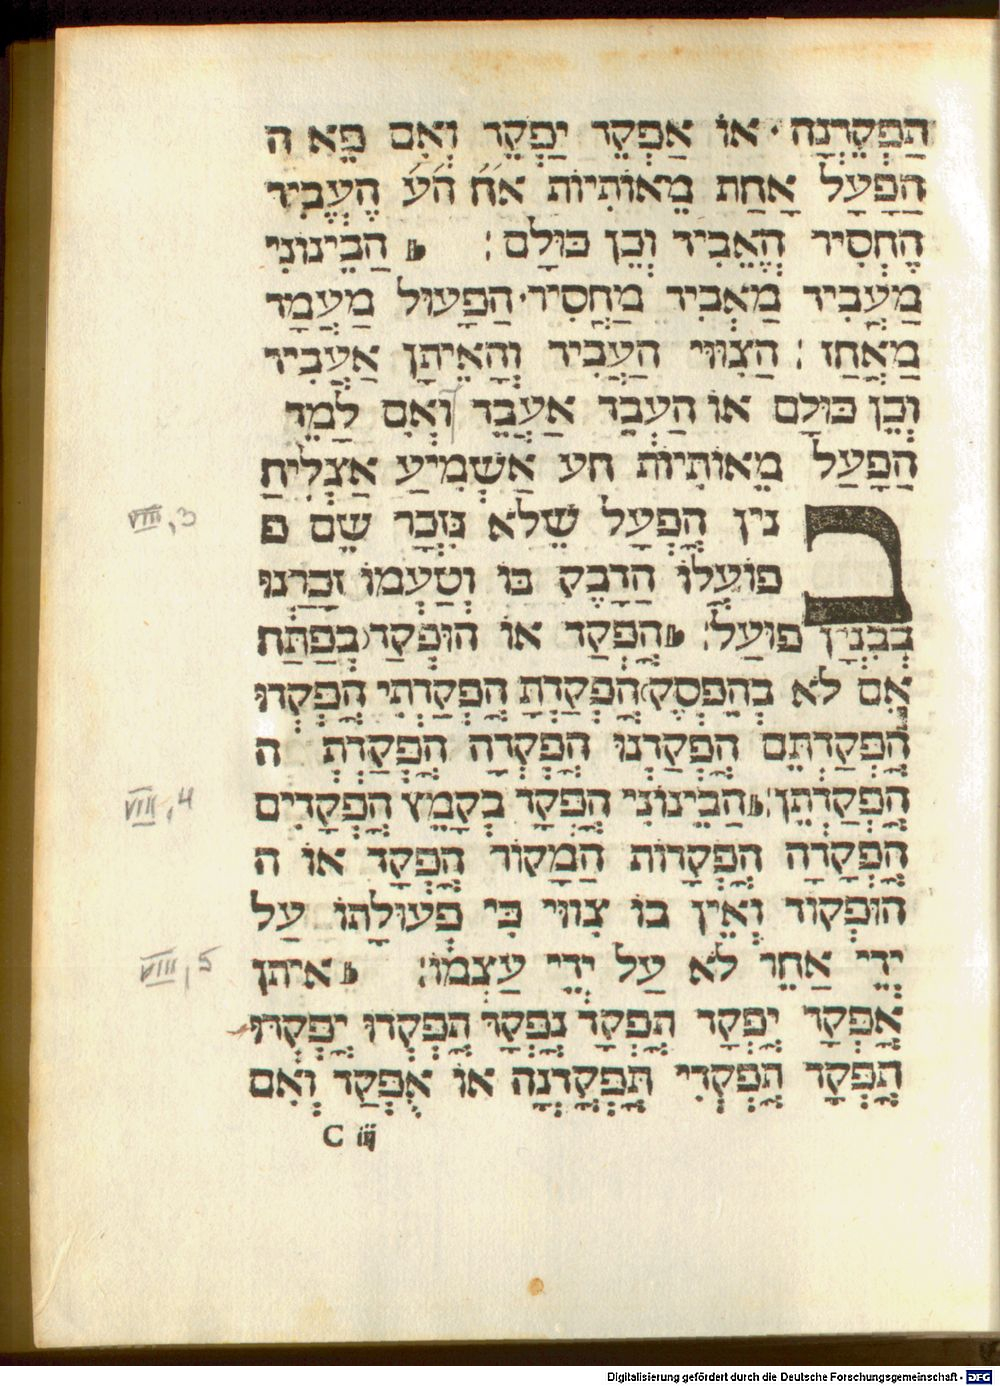 תַפְקֵרְנָה · אוֹ אַפְקֵר יַפְקֵר וְאִם פֵּא ה
הַפָּעַל אַחַת מֵאוֹתִיוֹת אחֿ הֿעֿ הֶעֱבִיר
הֶחְסִיר הֶאֱבִיד וְכֵן כּוּלָם : הַבֵינוֹנִי
מַעֲבִיר מַאְבִיד מַחְסִיר · הַפָּעוּל מַעֲמָד
מַאֲחַז : הַצִוּוּי הַעֲבִיר וְהָאֵיתָן אַעֲבִיר
וְכֵן כּוּלָם אוֹ הַעְבֵד אַעֲבֵד וְאִם לָמֵד
הַפָּעַל מֵאוֹתִיוֹת חע אַשְׁמִיעַ אַצְלִיחַ
VIII, 3
בנין הָפְעָל שֶׁלֹא נִזְכַּר שֵׁם פ
פוֹעֲלוֹ הַדָבֵק בּוֹ וְטַעְמוֹ זְכַרְנוּ
בְבִנְיָן פוּעַל : הָפְקַד אוֹ הוּפְקַד ( בְפַתַּח
אִם לֹא בְהֶפְסֵק ) הָפְקַדְתָ הָפְקַדְתִי הָפְקְדוּ
הָפְקַדְתֶּם הָפְקַדְנוּ הָפְקְדָה הָפְקַדְתְּ ה
VIII, 4
הָפְקַדְתֶּן : הַבֵינוֹנִי הָפְקָד בְקָמֵץ הָפְקָדִים
הָפְקָדָה הָפְקָדוֹת הַמָקוֹר הָפְקָד אוֹ ה
הוּפְקוֹד וְאֵין בוֹ צִווּי כִּי פְעוּלָתוֹ עַל
VIII, 5
יְדֵי אַחֵר לֹא עַל יְדֵי עַצְמוֹ : אֵיתָן
אָפְקָד יָפְקָד תָּפְקָד נָפְקָד תָּפְקְדוּ יָפְקְדוּ
תָּפְקָד תָּפְקְדִי תָּפְקָדְנָה אוֹ אֻפְקַד וְאִם
C iij
Digitalisierung gefördert durch die Deutsche Forschungsgemeinschaft - DFG